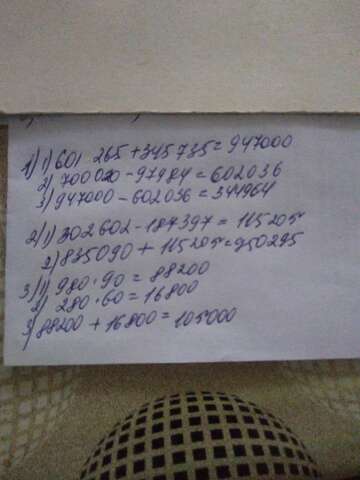 1) 1) 601 265 + 345 735 = 947000
2) 700 020 - 97984 = 602036
3) 947000 - 602036 = 344964
2) 1) 302602 - 187397 = 115205
2) 835090 + 115205 = 950295
3) 1) 980 · 90 = 88200
2) 280 · 60 = 16800
3) 88200 + 16800 = 105000